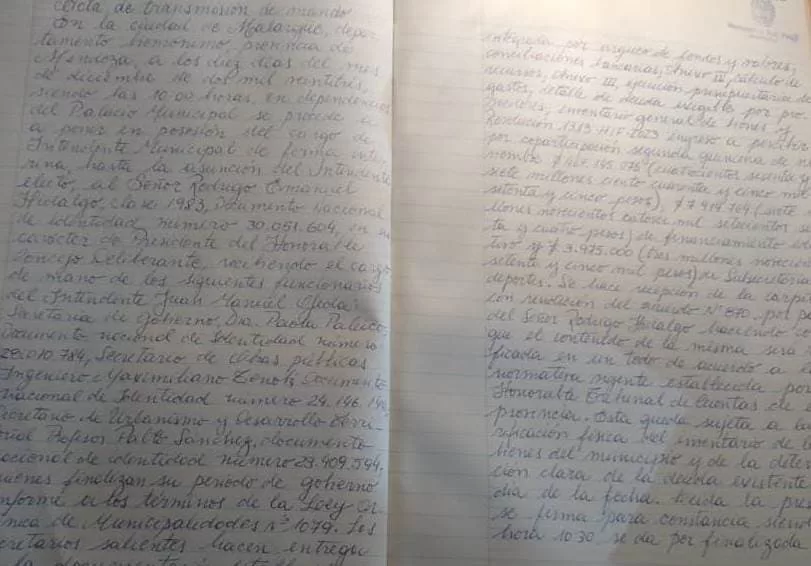 Acta de transmisión de mando
En la ciudad de Malargüe, depar-
tamento homónimo, provincia de
Mendoza, a los diez días del mes
de diciembre de dos mil veintitrés,
siendo las 10:00 horas, en dependencias
del Palacio Municipal se procede a
a poner en posesión del cargo de
Intendente Municipal de forma inte-
rina, hasta la asunción del Intendente
electo, al Señor Rodrigo Emanuel
Hidalgo, clase 1983, Documento Nacional
de identidad número 30.051.604, en su
carácter de Presidente del Honorable
Concejo Deliberante, recibiendo el cargo
de mano de los siguientes funcionarios
del Intendente Juan Manuel Ojeda:
Secretaria de gobierno, Dra. Paola
Documento nacional de Identidad número
28.010.784, Secretario de Obras públicas
Ingeniero Maximiliano Documento
nacional de Identidad número 24.146.
Secretario de Urbanismo y Desarrollo Terri-
orial Profesor Pablo Sánchez, documento
nacional de identidad número 29.409.594,
quienes finalizan su período de gobierno
conforme a los términos de la Ley Or-
ánica de Municipalidades N° 1079. Los
secretarios salientes hacen entrega
la
anticipador por arqueo de fondos y valores,
conciliaciones bancarias, Anexo IV, cálculo de
recursos, Anexo III, ejecución presupuestaria de
gastos, detalle de deuda exigible por pro-
veedores, inventario general de bienes y
Resolución 1353 HIF 2023 ingreso a percibir
por coparticipación segunda quincena de no
viembre $ 467.145.075 (cuatrocientos sesenta y
siete millones ciento cuarenta y cinco mil
setenta y cinco pesos), $ 7.914.764 (siete
llones novecientos catorce mil setecientos se
ta y cuatro pesos) de financiamiento
y $ 3.975.000 (tres millones novecien
setenta y cinco mil pesos) de Subsecretaría
deportes. Se hace recepción de la carpe
con resolución del acuerdo N° 870. por pa
del Señor Rodrigo Hidalgo haciendo
que el contenido de la misma será
ficada en un todo de acuerdo a la
normativa vigente establecida por
Honorable Tribunal de Cuentas de
provincia. Esta queda sujeta a la
rificación física del inventario de
bienes del municipio y de la deter
ción clara de la deuda existente
día de la fecha. Leída la pres
se firma para constancia siendo
hora 10:30 se da por finalizada